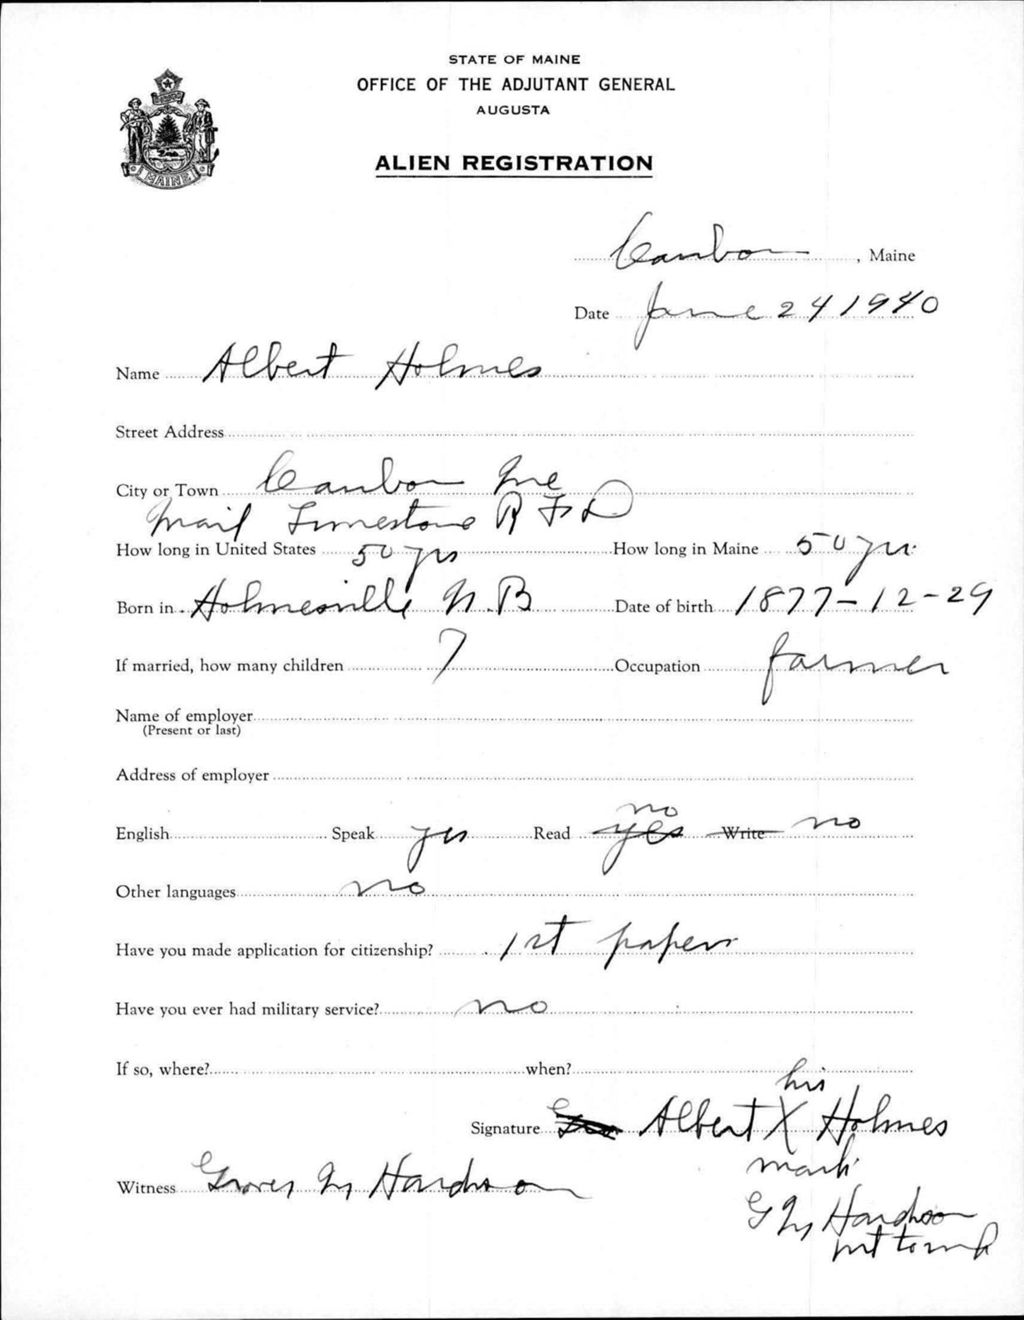 STATE OF MAINE
OFFICE OF THE ADJUTANT GENERAL
AUGUSTA
MAINE
ALIEN REGISTRATION
Caribou, Maine
Date June 24 1940
Name Albert Holmes
Street Address
City or Town Caribou Me
Mail Limestone R F D
How long in United States 50 yrs How long in Maine 50 yrs
Born in Holmesville N.B Date of birth 1877-12-29
If married, how many children 7 Occupation farmer
Name of employer
(Present or last)
Address of employer
English Speak yes Read yes no Write no
Other languages no
Have you made application for citizenship? 1st papers
Have you ever had military service? no
If so, where? when?
his
Signature Albert X Holmes
mark
Witness Grover M Hardison
G M Hardison